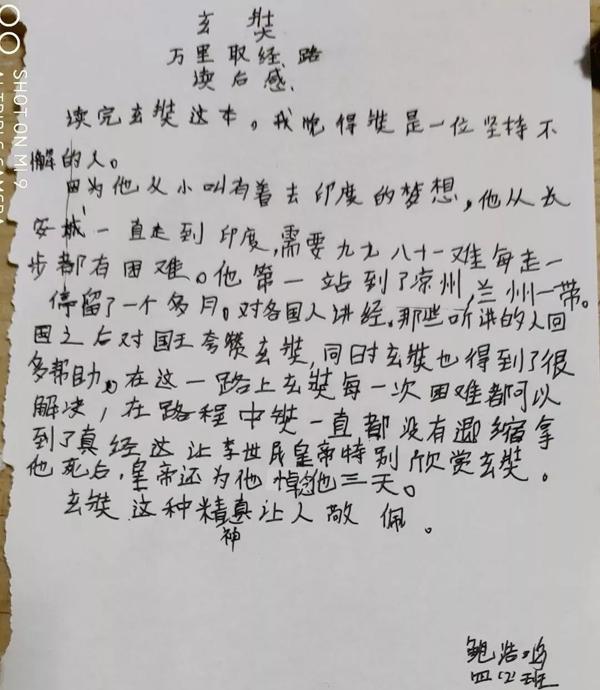 玄奘
万里取经路
读后感、
读完玄奘这本。我觉得奘是一位坚持不
懈的人。
因为他从小叫有着去印度的梦想,他从长
安城一直走到印度,需要九九八十一难每走一
步都有困难。他第一站到了凉州,兰州一带。
停留了一个多月。对各国人讲经。那些听讲的人回
国之后对国王夸赞玄奘,同时玄奘也得到了很
多帮助。在这一路上玄奘每一次困难都可以
解决,在路程中奘一直都没有退缩拿
到了真经这让李世民皇帝特别欣赏玄奘。
他死后,皇帝还为他悼念他三天。
玄奘这种精神让人敬佩。
鲍浩
四(2)班
SHOT ON MI 9
AI TRIPLE CAMERA